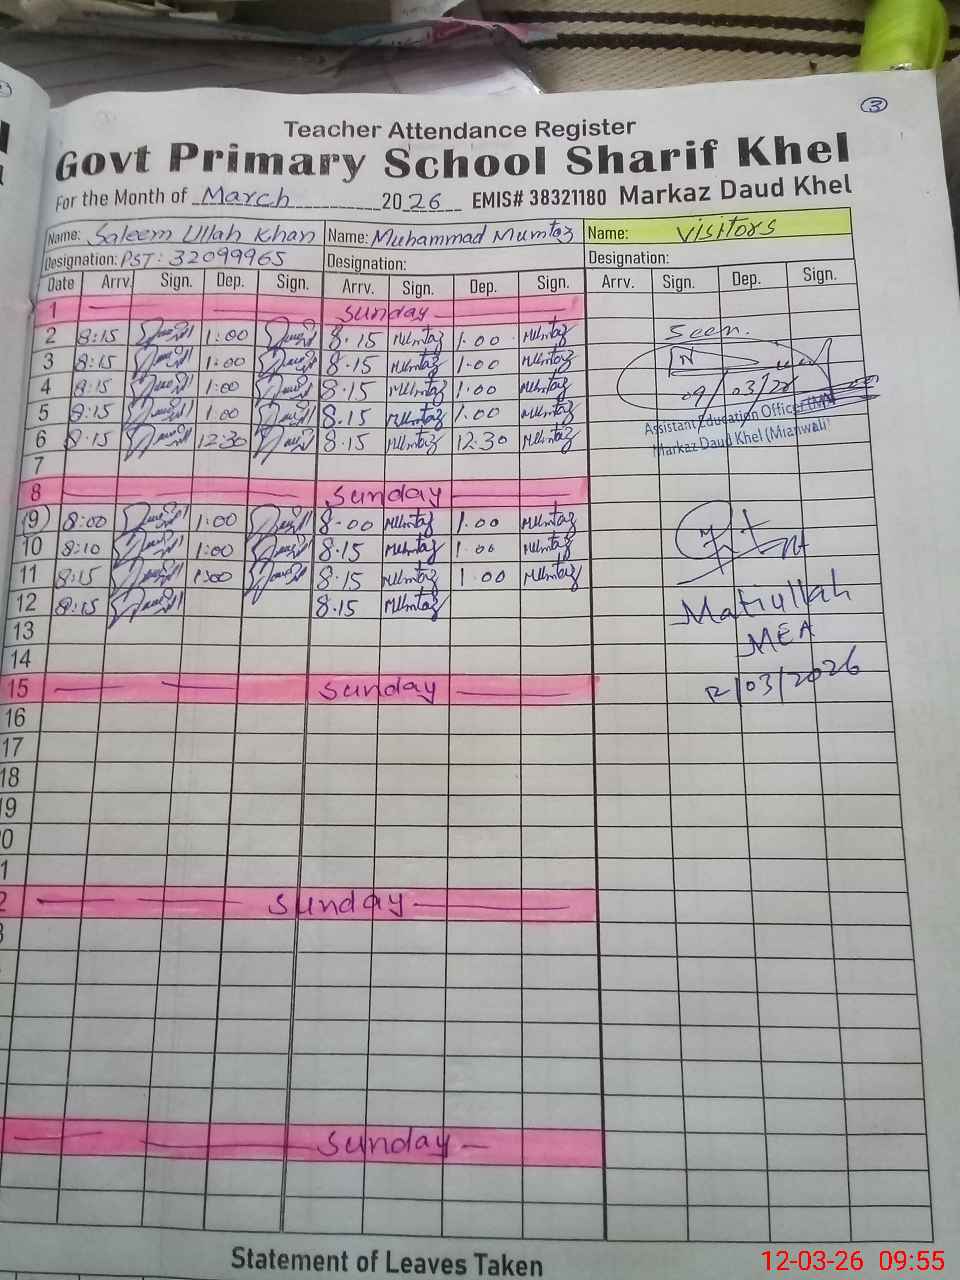 3
Teacher Attendance Register
Govt Primary School Sharif Khel
For the Month of March 2026 EMIS# 38321180 Markaz Daud Khel
Name: Saleem Ullah Khan Name: Muhammad Mumtaz Name: Visitors
Designation: PST: 32099965 Designation: Designation:
Date Arrv. Sign. Dep. Sign. Arrv. Sign. Dep. Sign. Arrv. Sign. Dep. Sign.
1 Sunday
2 8:15 1:00 8.15 Mumtaz 1.00 Mumtaz Seen.
3 8:15 1:00 8.15 Mumtaz 1.00 Mumtaz
4 8:15 1:00 8.15 Mumtaz 1.00 Mumtaz 09/03/26
5 8:15 1:00 8.15 Mumtaz 1.00 Mumtaz Assistant Education Officer (M)
6 8:15 12:30 8.15 Mumtaz 12:30 Mumtaz Markaz Daud Khel (Mianwali)
7
8 Sunday
9 8:00 1:00 8.00 Mumtaz 1.00 Mumtaz
10 8:10 1:00 8.15 Mumtaz 1.00 Mumtaz
11 8:15 1:00 8.15 Mumtaz 1.00 Mumtaz
12 8:15 8.15 Mumtaz Matiullah
13 MEA
14
15 Sunday 12/03/2026
16
17
18
19
0
1
2 Sunday
3
Sunday
Statement of Leaves Taken
12-03-26 09:55